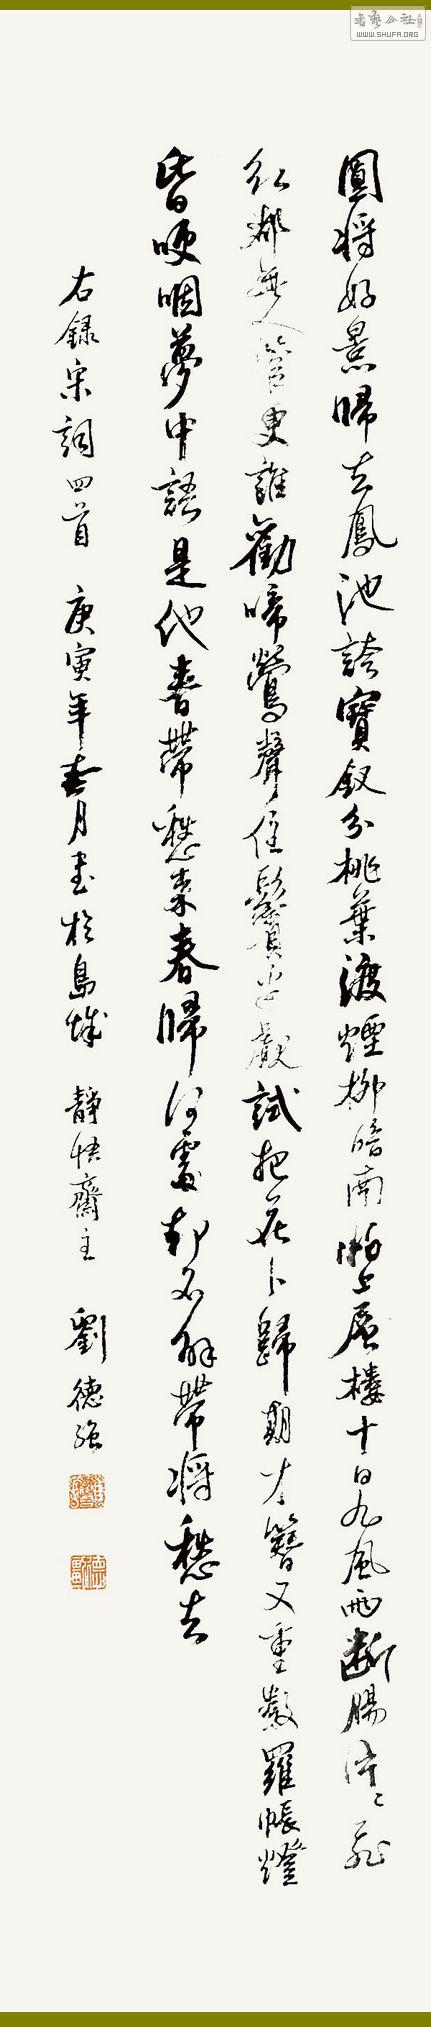 圖將好景歸去鳳池誇寶釵分桃葉渡煙柳暗南浦怕上層樓十日九風雨斷腸片〻飛
紅都無人管更誰勸啼鶯聲住鬢邊覷試把花卜歸期才簪又重數羅帳燈
昏哽咽夢中語是他春帶愁來春歸何處却不解帶將愁去
右録宋詞四首 庚寅年春月書於島城 靜悟齋主 劉德強
書藝公社
WWW.SHUFA.ORG